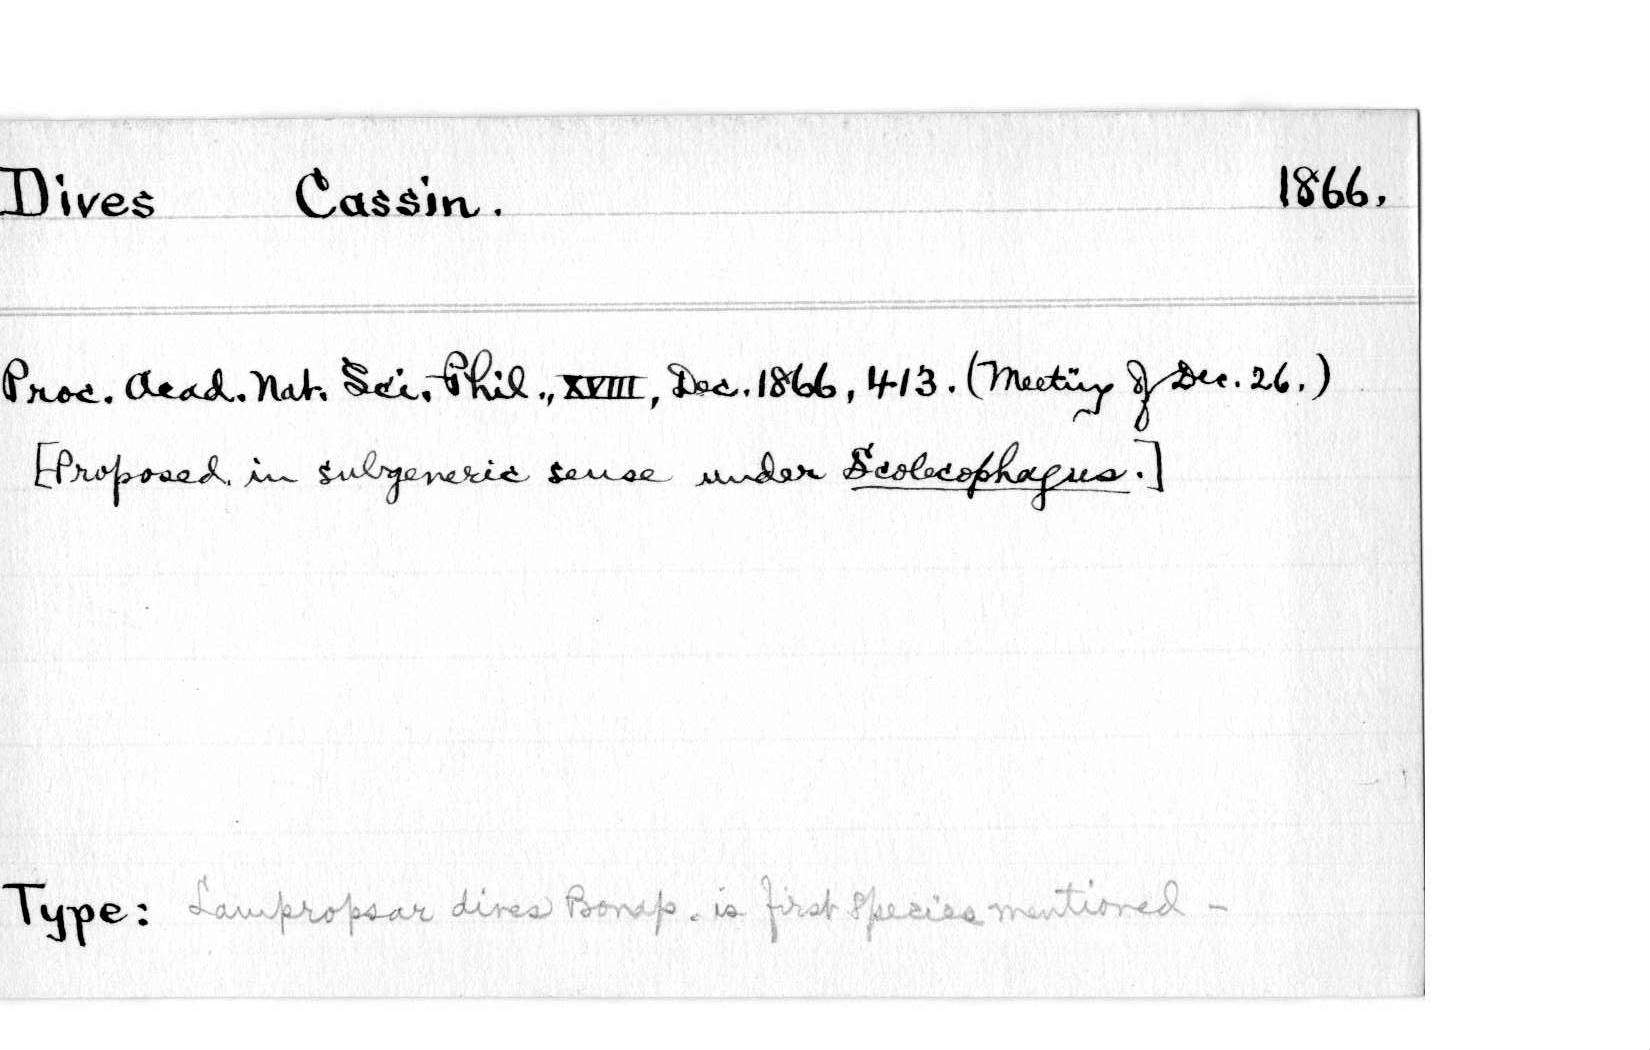 Dives Cassin. 1866.
Proc. Acad. Nat. Sci. Phil., XVIII, Dec. 1866, 413. (Meeting of Dec. 26.)
[Proposed in subgeneric sense under Scolecophagus.]
Type: Lampropsar dives Bonap. is first species mentioned -